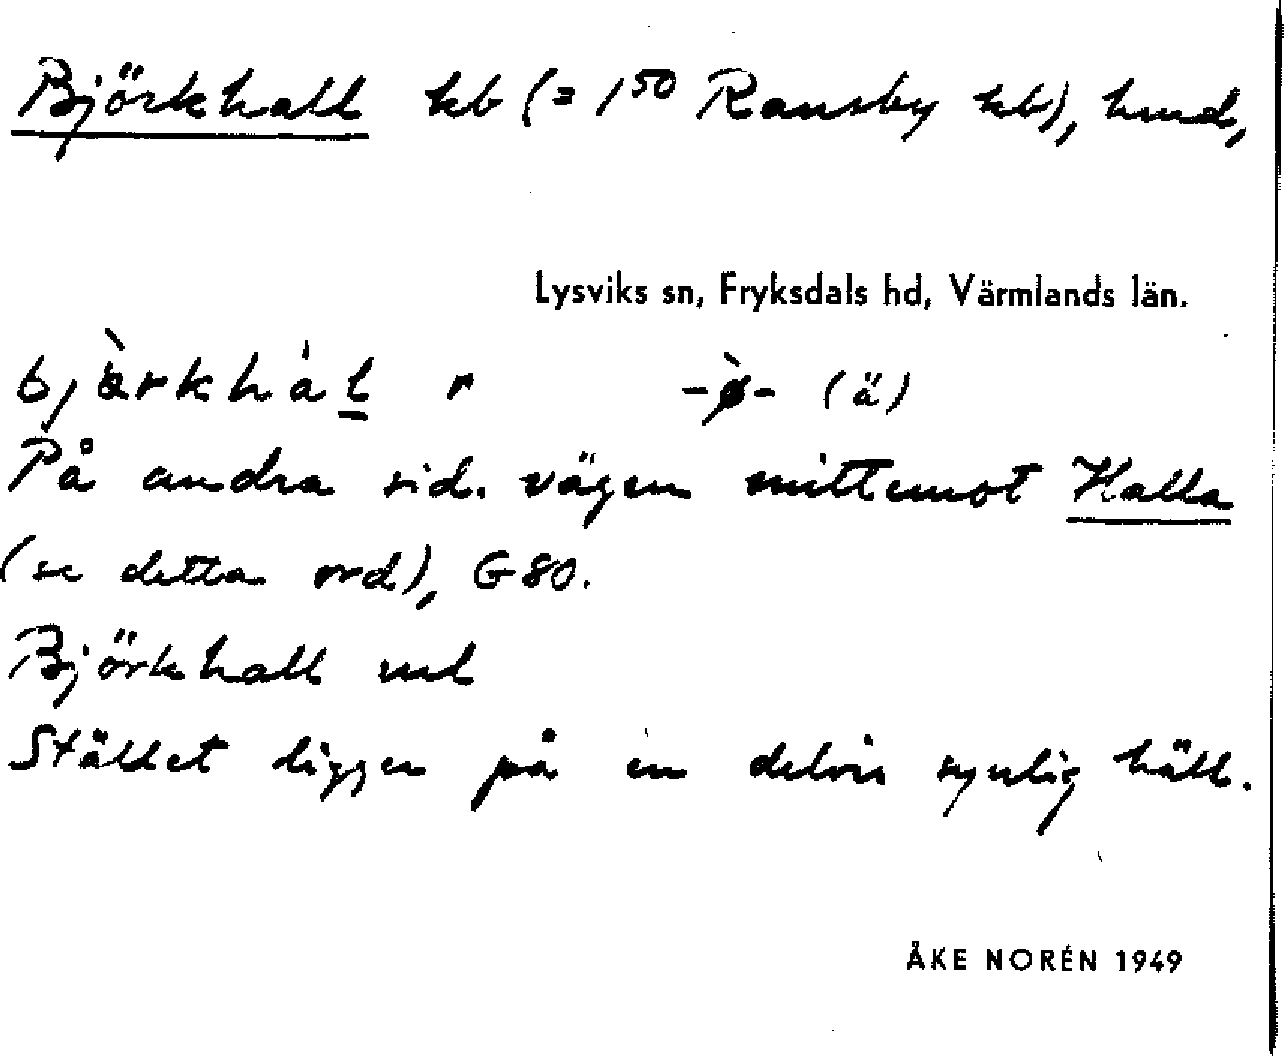 Björkhall hb (= 1⁵⁰ Ransby hb), hmd,
Lysviks sn, Fryksdals hd, Värmlands län.
bjærkhàl r -ø̀- (ä)
På andra sid. vägen mittemot Halla
(se detta ord), G 80.
Björkhall uml
Stället ligger på en delvis synlig häll.
ÅKE NORÉN 1949